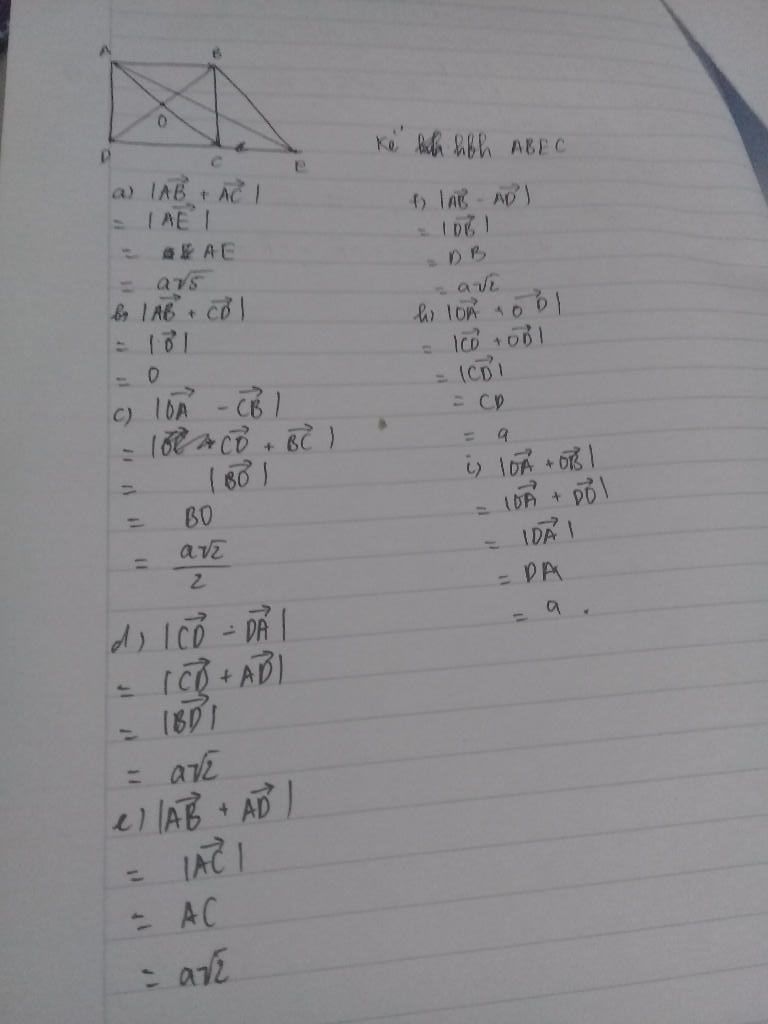 A B
O
D C E
Kẻ hbh ABEC
a) |AB + AC|
= |AE|
= AE
= a√5
b) |AB + CD|
= |0|
= 0
c) |OA - CB|
= |CO + BC|
= |BO|
= BO
= a√2/2
d) |CD - DA|
= |CD + AD|
= |BD|
= a√2
e) |AB + AD|
= |AC|
= AC
= a√2
f) |AB - AD|
= |DB|
= DB
= a√2
h) |OA + OD|
= |CO + OD|
= |CD|
= CD
= a
i) |OA + OB|
= |OA + DO|
= |DA|
= DA
= a.